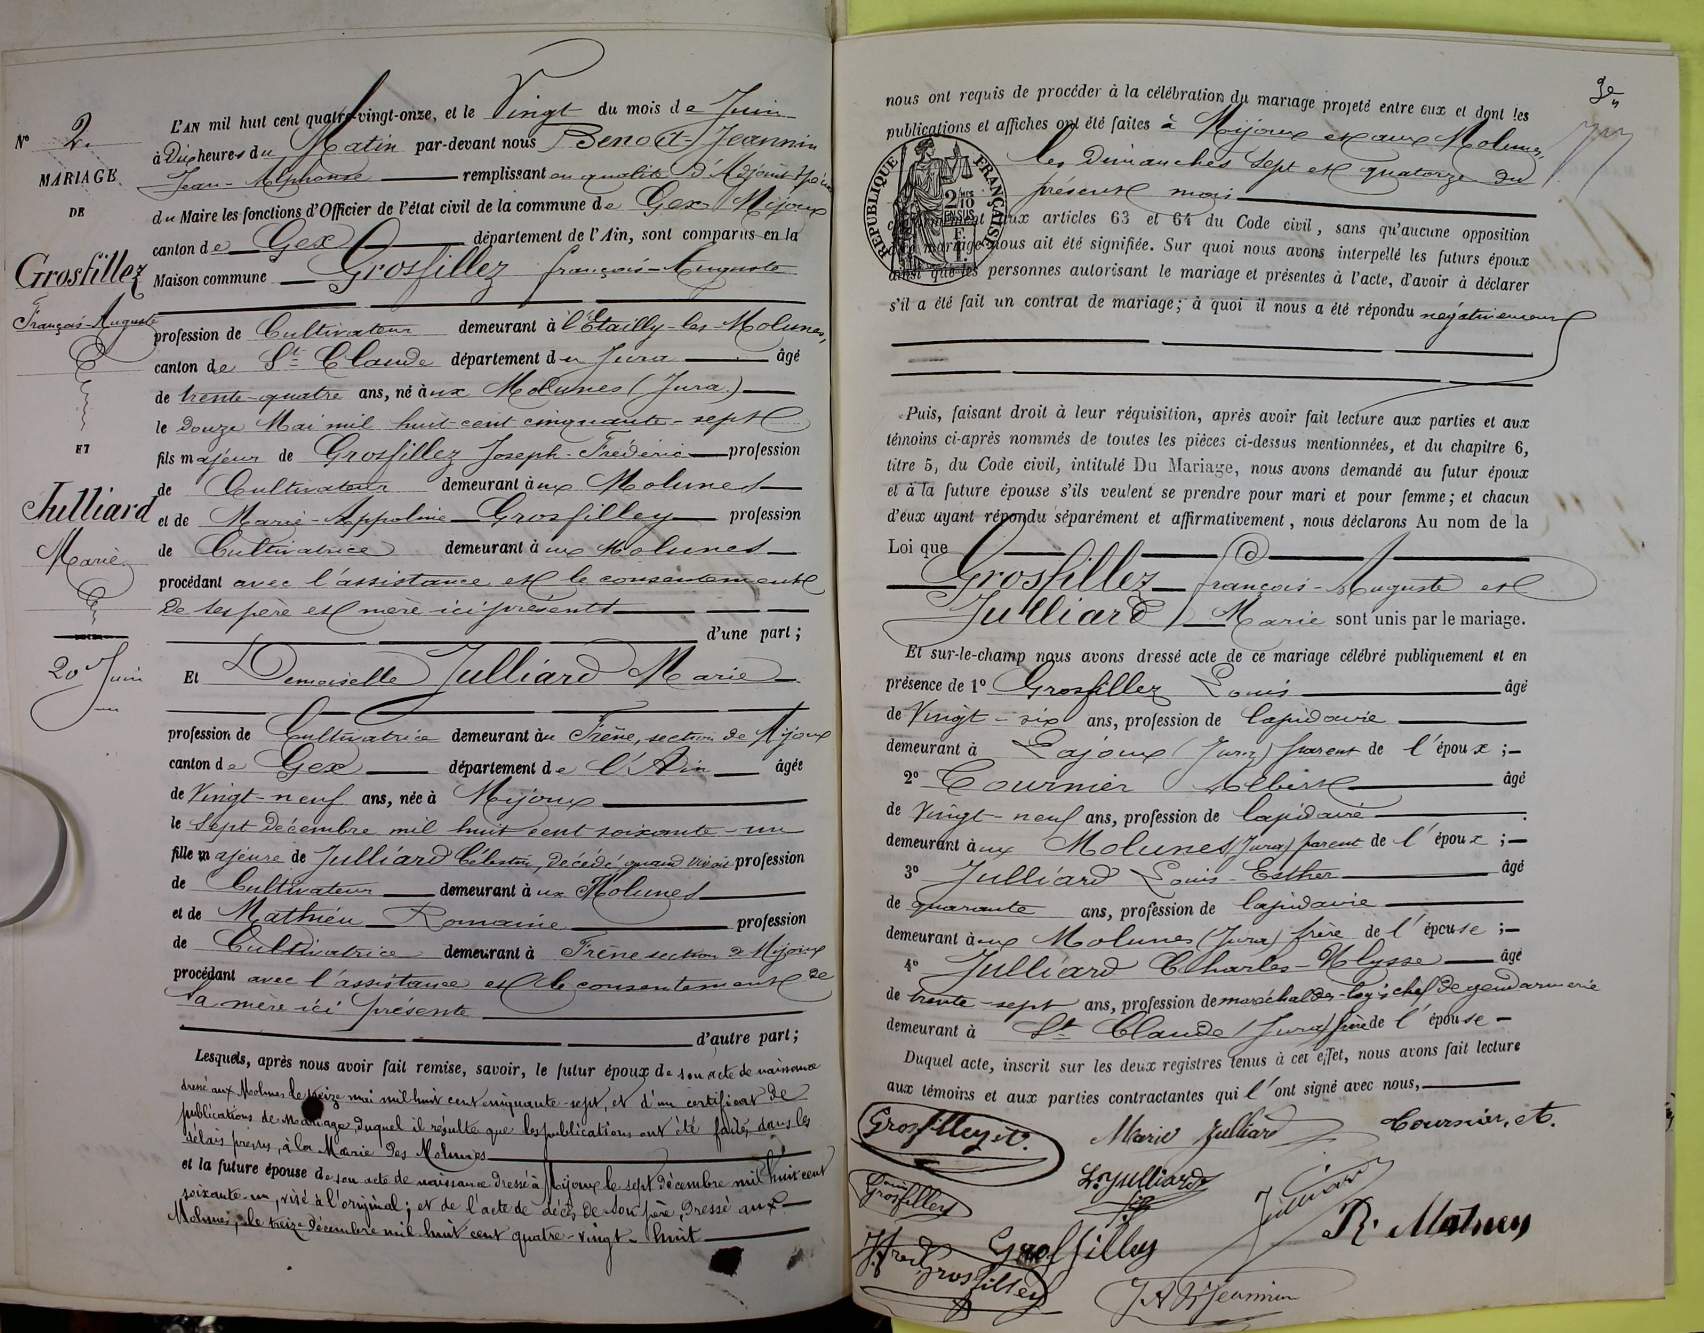 N° 2.
MARIAGE
DE
Grosfillez
François-Auguste
ET
Julliard
Marie
20 Juin
L'AN mil huit cent quatre-vingt-onze, et le Vingt du mois de Juin
à Dix heures du Matin par-devant nous Benoit-Jeannin
Jean-Alphonse remplissant en qualité d'Adjoint spécial
du Maire les fonctions d'Officier de l'état civil de la commune de Gex Mijoux
canton de Gex département de l'Ain, sont comparus en la
Maison commune Grosfillez françois-Auguste
profession de Cultivateur demeurant à l'Etailly-les-Molunes,
canton de St Claude département du Jura âgé
de trente-quatre ans, né aux Molunes (Jura)
le douze Mai mil huit-cent cinquante-sept
fils majeur de Grosfillez Joseph-Frédéric profession
de Cultivateur demeurant aux Molunes
et de Marie-Appoline Grosfilley profession
de Cultivatrice demeurant aux Molunes
procédant avec l'assistance et le consentement
de ses père et mère ici présents
d'une part;
Et Demoiselle Julliard Marie
profession de Cultivatrice demeurant au Frêne, section de Mijoux
canton de Gex département de l'Ain âgée
de Vingt-neuf ans, née à Mijoux
le Sept décembre mil huit cent soixante-un
fille majeure de Julliard Célestin, décédé, quand vivait profession
de Cultivateur demeurant aux Molunes
et de Mathieu Romaine profession
de Cultivatrice demeurant à Frêne section de Mijoux
procédant avec l'assistance et le consentement de
sa mère ici présente
d'autre part;
Lesquels, après nous avoir fait remise, savoir, le futur époux de son acte de naissance
dressé aux Molunes le treize mai mil huit cent cinquante-sept, et d'un certificat de
publications de mariage, duquel il résulte que les publications ont été faites, dans les
délais prescrits, à la Mairie des Molunes
et la future épouse de son acte de naissance dressé à Mijoux le sept décembre mil huit cent
soixante-un, visé à l'original; et de l'acte de décès de son père, dressé aux
Molunes, le treize décembre mil huit cent quatre-vingt-huit
nous ont requis de procéder à la célébration du mariage projeté entre eux et dont les
publications et affiches ont été faites à Mijoux et aux Molunes,
les dimanches sept et quatorze du
présent mois
RÉPUBLIQUE FRANÇAISE
2/10 EN SUS
aux articles 63 et 64 du Code civil, sans qu'aucune opposition
mariage nous ait été signifiée. Sur quoi nous avons interpellé les futurs époux
ainsi que les personnes autorisant le mariage et présentes à l'acte, d'avoir à déclarer
s'il a été fait un contrat de mariage; à quoi il nous a été répondu négativement
Puis, faisant droit à leur réquisition, après avoir fait lecture aux parties et aux
témoins ci-après nommés de toutes les pièces ci-dessus mentionnées, et du chapitre 6,
titre 5, du Code civil, intitulé Du Mariage, nous avons demandé au futur époux
et à la future épouse s'ils veulent se prendre pour mari et pour femme; et chacun
d'eux ayant répondu séparément et affirmativement, nous déclarons Au nom de la
Loi que
Grosfillez françois-Auguste et
Julliard Marie sont unis par le mariage.
Et sur-le-champ nous avons dressé acte de ce mariage célébré publiquement et en
présence de 1° Grosfillez Louis âgé
de Vingt-six ans, profession de lapidaire
demeurant à Lajoux (Jura) parent de l'époux;
2° Tournier Albert âgé
de Vingt-neuf ans, profession de lapidaire
demeurant aux Molunes (Jura) parent de l'époux;
3° Julliard Louis-Esther âgé
de quarante ans, profession de lapidaire
demeurant aux Molunes (Jura) frère de l'épouse;
4° Julliard Charles-Ulysse âgé
de trente-sept ans, profession de maréchal des-logis chef de gendarmerie
demeurant à St Claude (Jura) frère de l'épouse
Duquel acte, inscrit sur les deux registres tenus à cet effet, nous avons fait lecture
aux témoins et aux parties contractantes qui l'ont signé avec nous,
Grosfilley
Marie Julliard
Tournier, A.
Louis Grosfilley
Ls Julliard
Julliard
R. Mathieu
J. fred Grosfilley
Grosfilley
J A B Jeannin